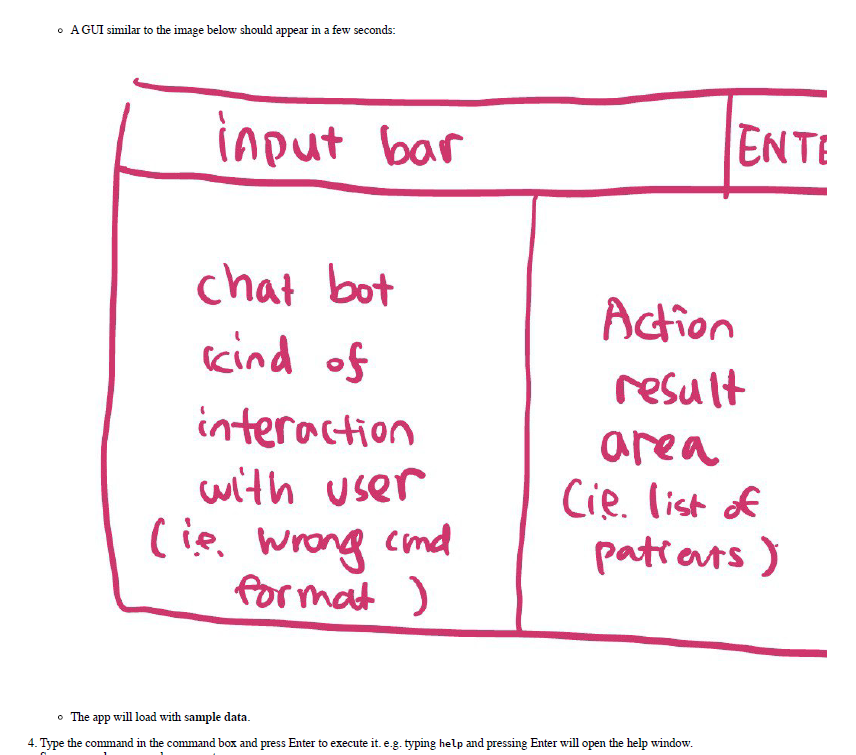 A GUI similar to the image below should appear in a few seconds:
input bar
ENTE
chat bot
kind of
interaction
with user
(i.e. wrong cmd
format )
Action
result
area
(ie. list of
patients )
The app will load with sample data.
4. Type the command in the command box and press Enter to execute it. e.g. typing help and pressing Enter will open the help window.